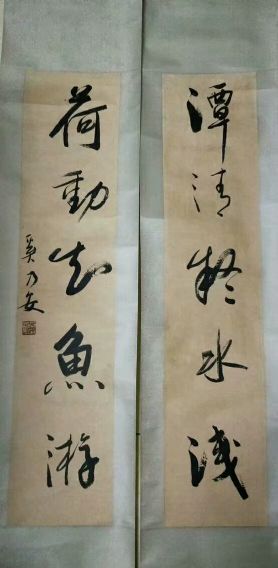 潭清疑水浅
荷動知魚游
奚乃安